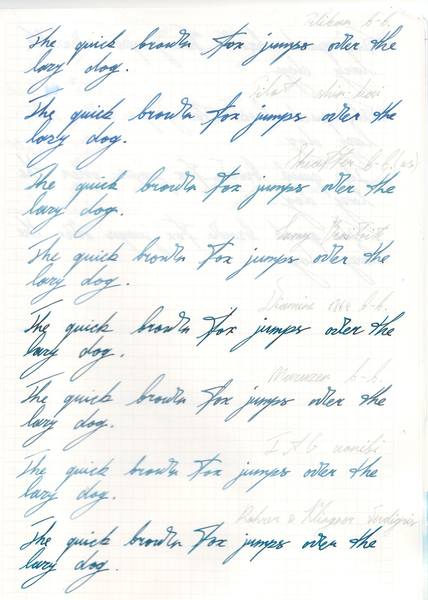 Pelikan b-b.
The quick brown fox jumps over the
lazy dog.
Pilot shin-kai
The quick brown fox jumps over the
lazy dog.
b-b (us)
The quick brown fox jumps over the
lazy dog.
Lamy
The quick brown fox jumps over the
lazy dog.
Diamine 1864 b-b.
The quick brown fox jumps over the
lazy dog.
Maruzen b-b.
The quick brown fox jumps over the
lazy dog.
The quick brown fox jumps over the
lazy dog.
Rohrer & Klingner
The quick brown fox jumps over the
lazy dog.